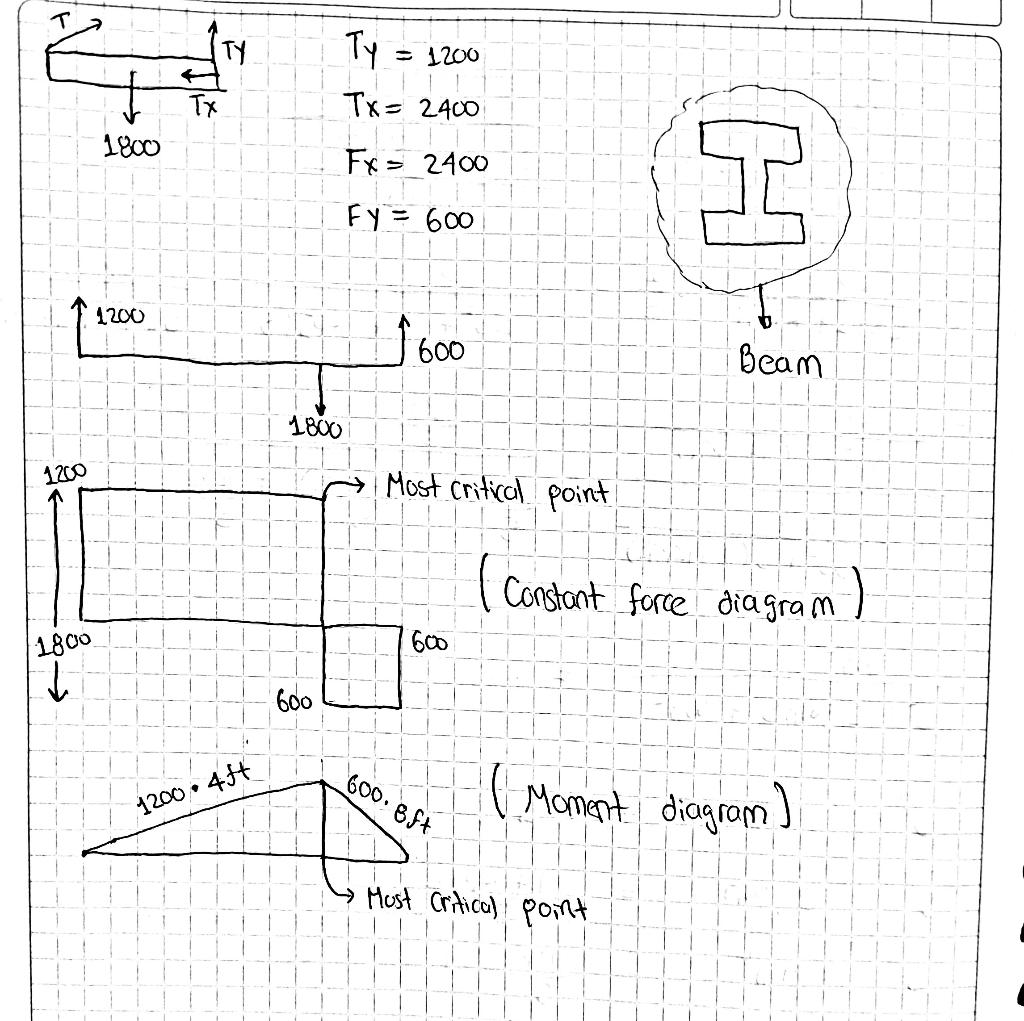 T
Ty
Tx
1800
Ty = 1200
Tx = 2400
Fx = 2400
Fy = 600
Beam
1200
600
1800
1200
Most critical point
(Constant force diagram)
1800
600
600
1200 • 4ft
600. 8ft
(Moment diagram)
Most critical point